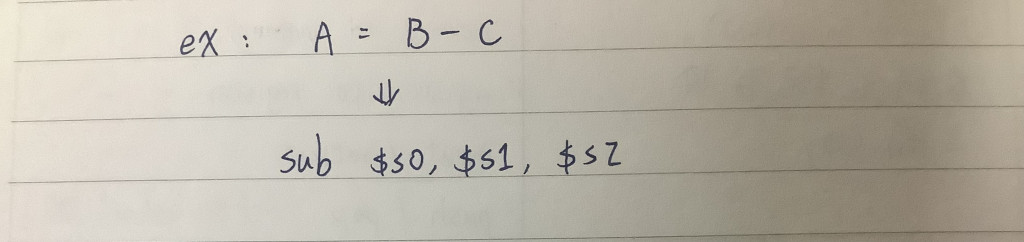 ex : A = B - C
⇓
sub $s0, $s1, $s2